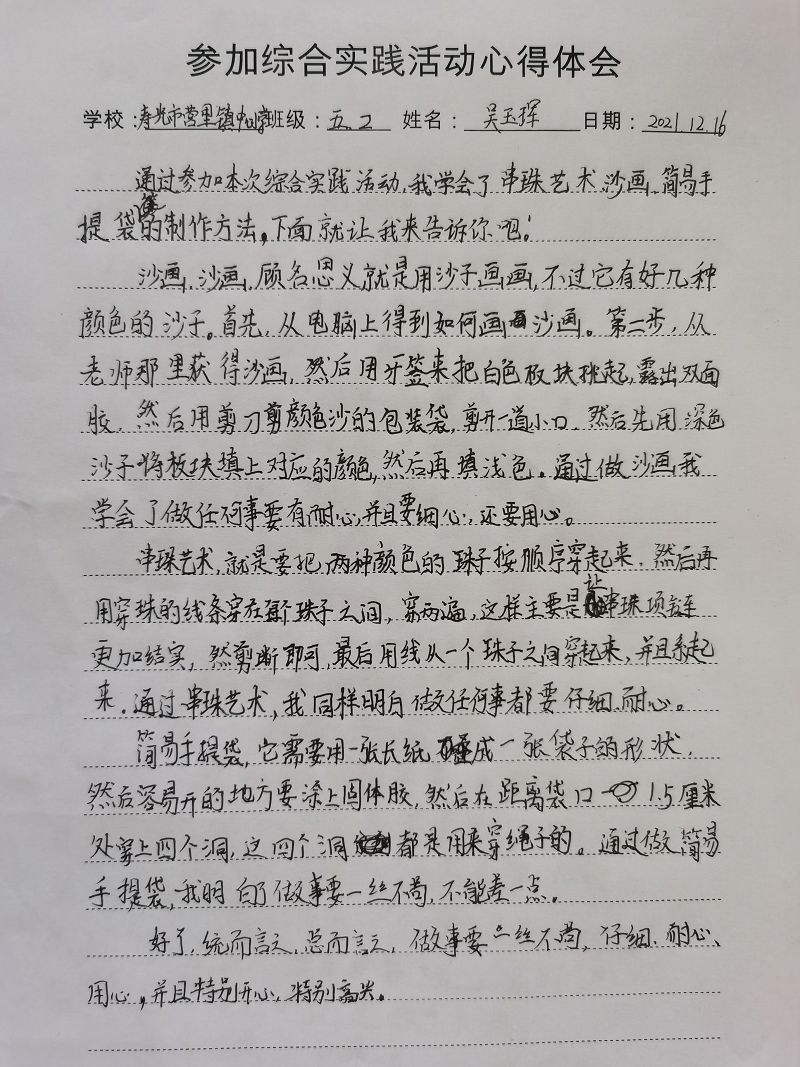 参加综合实践活动心得体会
学校:寿光市营里镇中心学班级:五.2 姓名:吴玉珲 日期:2021.12.16
通过参加本次综合实践活动,我学会了串珠艺术、沙画、简易手
提袋的制作方法。下面就让我来告诉你吧!
沙画,沙画,顾名思义就是用沙子画画,不过它有好几种
颜色的沙子。首先,从电脑上得到如何画沙画。第二步,从
老师那里获得沙画,然后用牙签来把白色板块挑起,露出双面
胶.然后用剪刀剪颜色沙的包装袋,剪开一道小口.然后先用深色
沙子将板块填上对应的颜色,然后再填浅色。通过做沙画我
学会了做任何事要有耐心,并且要细心,还要用心。
串珠艺术,就是要把两种颜色的珠子按顺序穿起来.然后再
用穿珠的线条穿在每个珠子之间,穿两遍,这样主要是让串珠项链
更加结实,然剪断即可,最后用线从一个珠子之间穿起来,并且系起
来.通过串珠艺术,我同样明白做任何事都要仔细.耐心。
简易手提袋,它需要用一张长纸叠成一张袋子的形状,
然后容易开的地方要涂上固体胶,然后在距离袋口1.5厘米
处穿上四个洞,这四个洞都是用来穿绳子的。通过做简易
手提袋,我明白了做事要一丝不苟,不能差一点。
好了,统而言之,总而言之,做事要一丝不苟,仔细、耐心、
用心,并且特别开心,特别高兴。